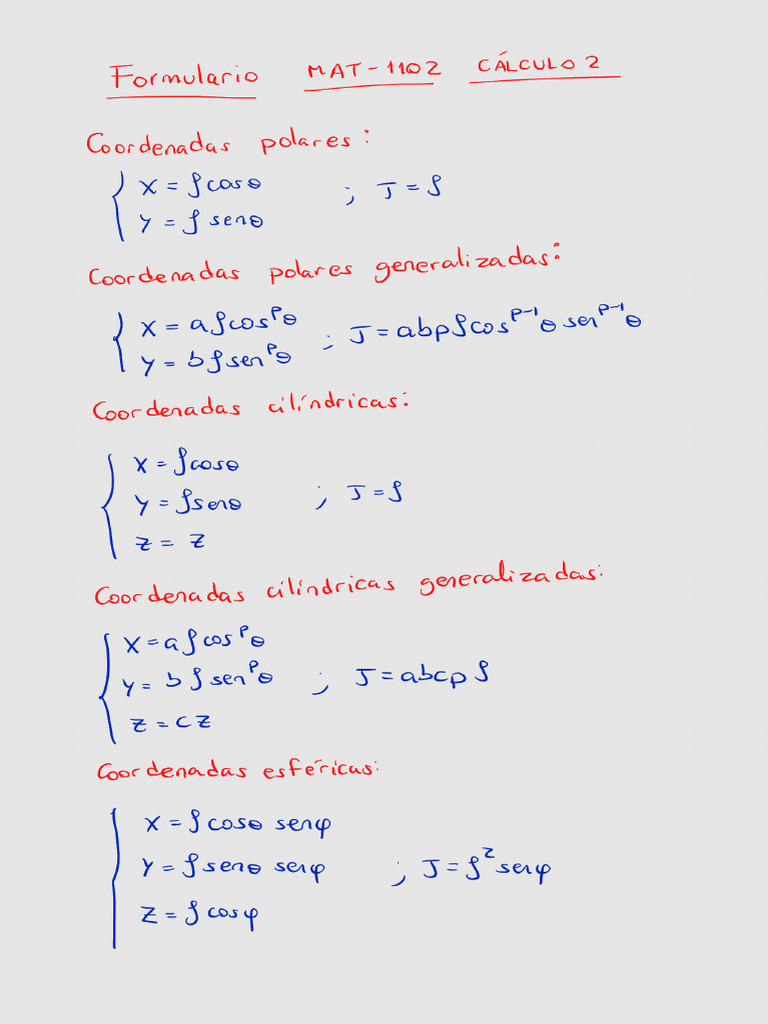 Formulario MAT-1102 CÁLCULO 2
Coordenadas polares:
{ x = ρ cos θ
y = ρ sen θ ; J = ρ
Coordenadas polares generalizadas:
{ x = a ρ cos^p θ
y = b ρ sen^p θ ; J = a b p ρ cos^{p-1} θ sen^{p-1} θ
Coordenadas cilíndricas:
{ x = ρ cos θ
y = ρ sen θ ; J = ρ
z = z
Coordenadas cilíndricas generalizadas:
{ x = a ρ cos^p θ
y = b ρ sen^p θ ; J = a b c p ρ
z = c z
Coordenadas esféricas:
{ x = ρ cos θ sen φ
y = ρ sen θ sen φ ; J = ρ^2 sen φ
z = ρ cos φ